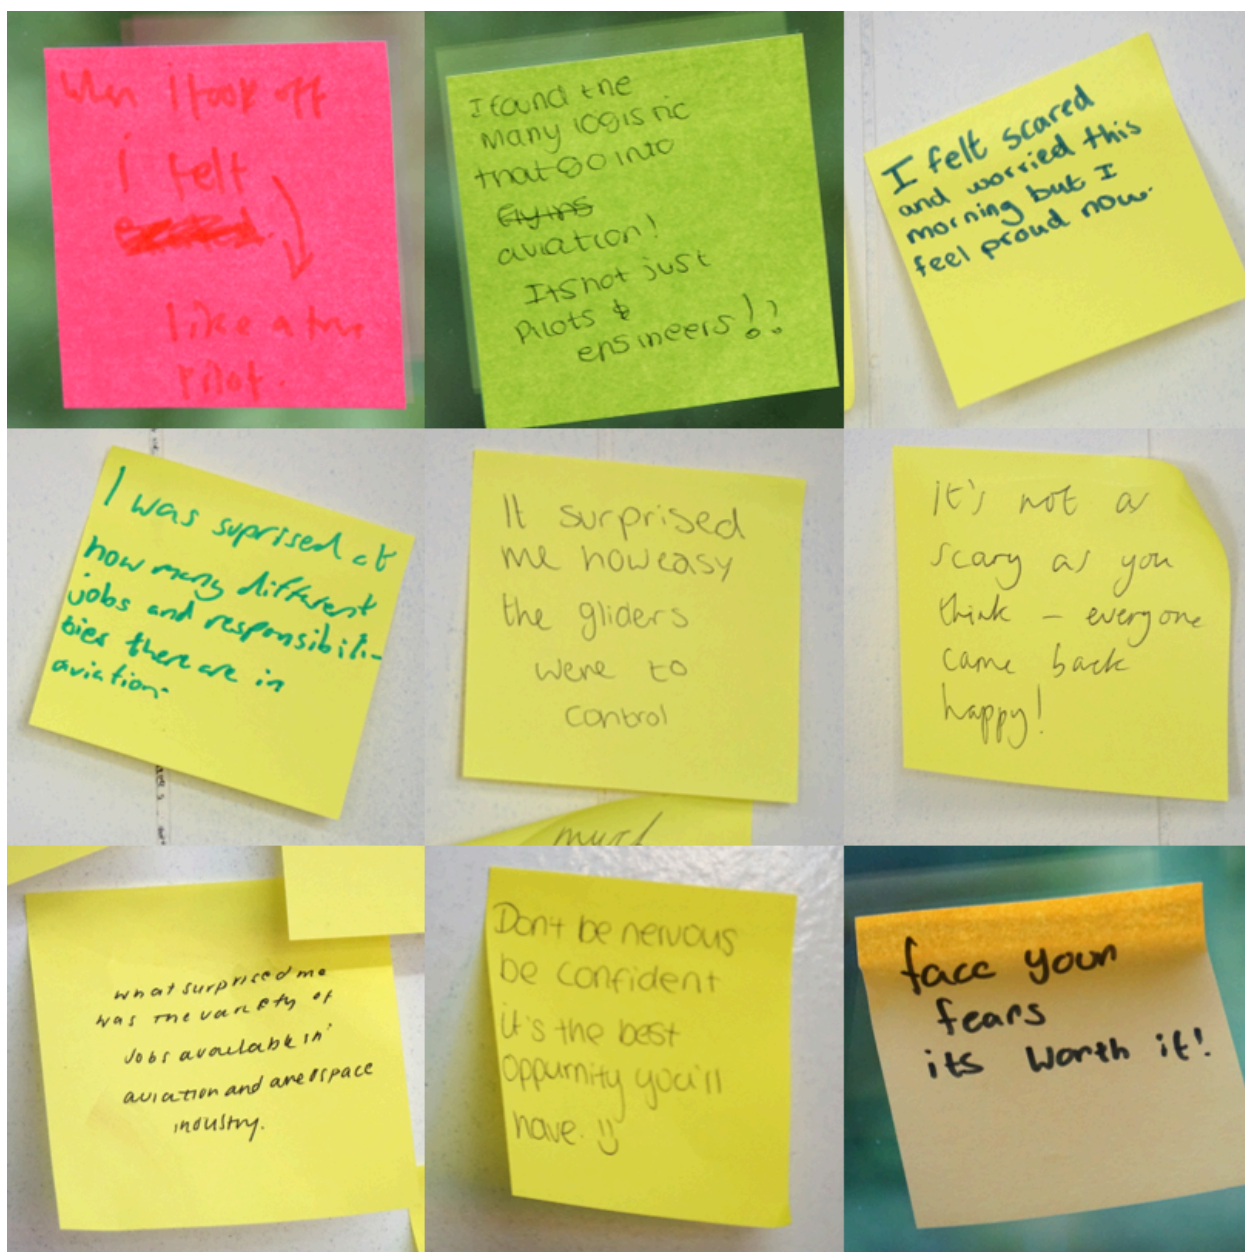 When I took off
i felt
like a true
pilot.
I found the
many logistic
that go into
flying
aviation!
Its not just
pilots &
engineers!?
I felt scared
and worried this
morning but I
feel proud now.
I was suprised at
how many different
jobs and responsibili-
ties there are in
aviation.
It surprised
me how easy
the gliders
were to
control
much
it's not as
scary as you
think - everyone
came back
happy!
what surprised me
was the variety of
jobs available in
aviation and areospace
industry.
Don't be nervous
be confident
it's the best
oppurnity you'll
have. :)
face your
fears
its worth it!